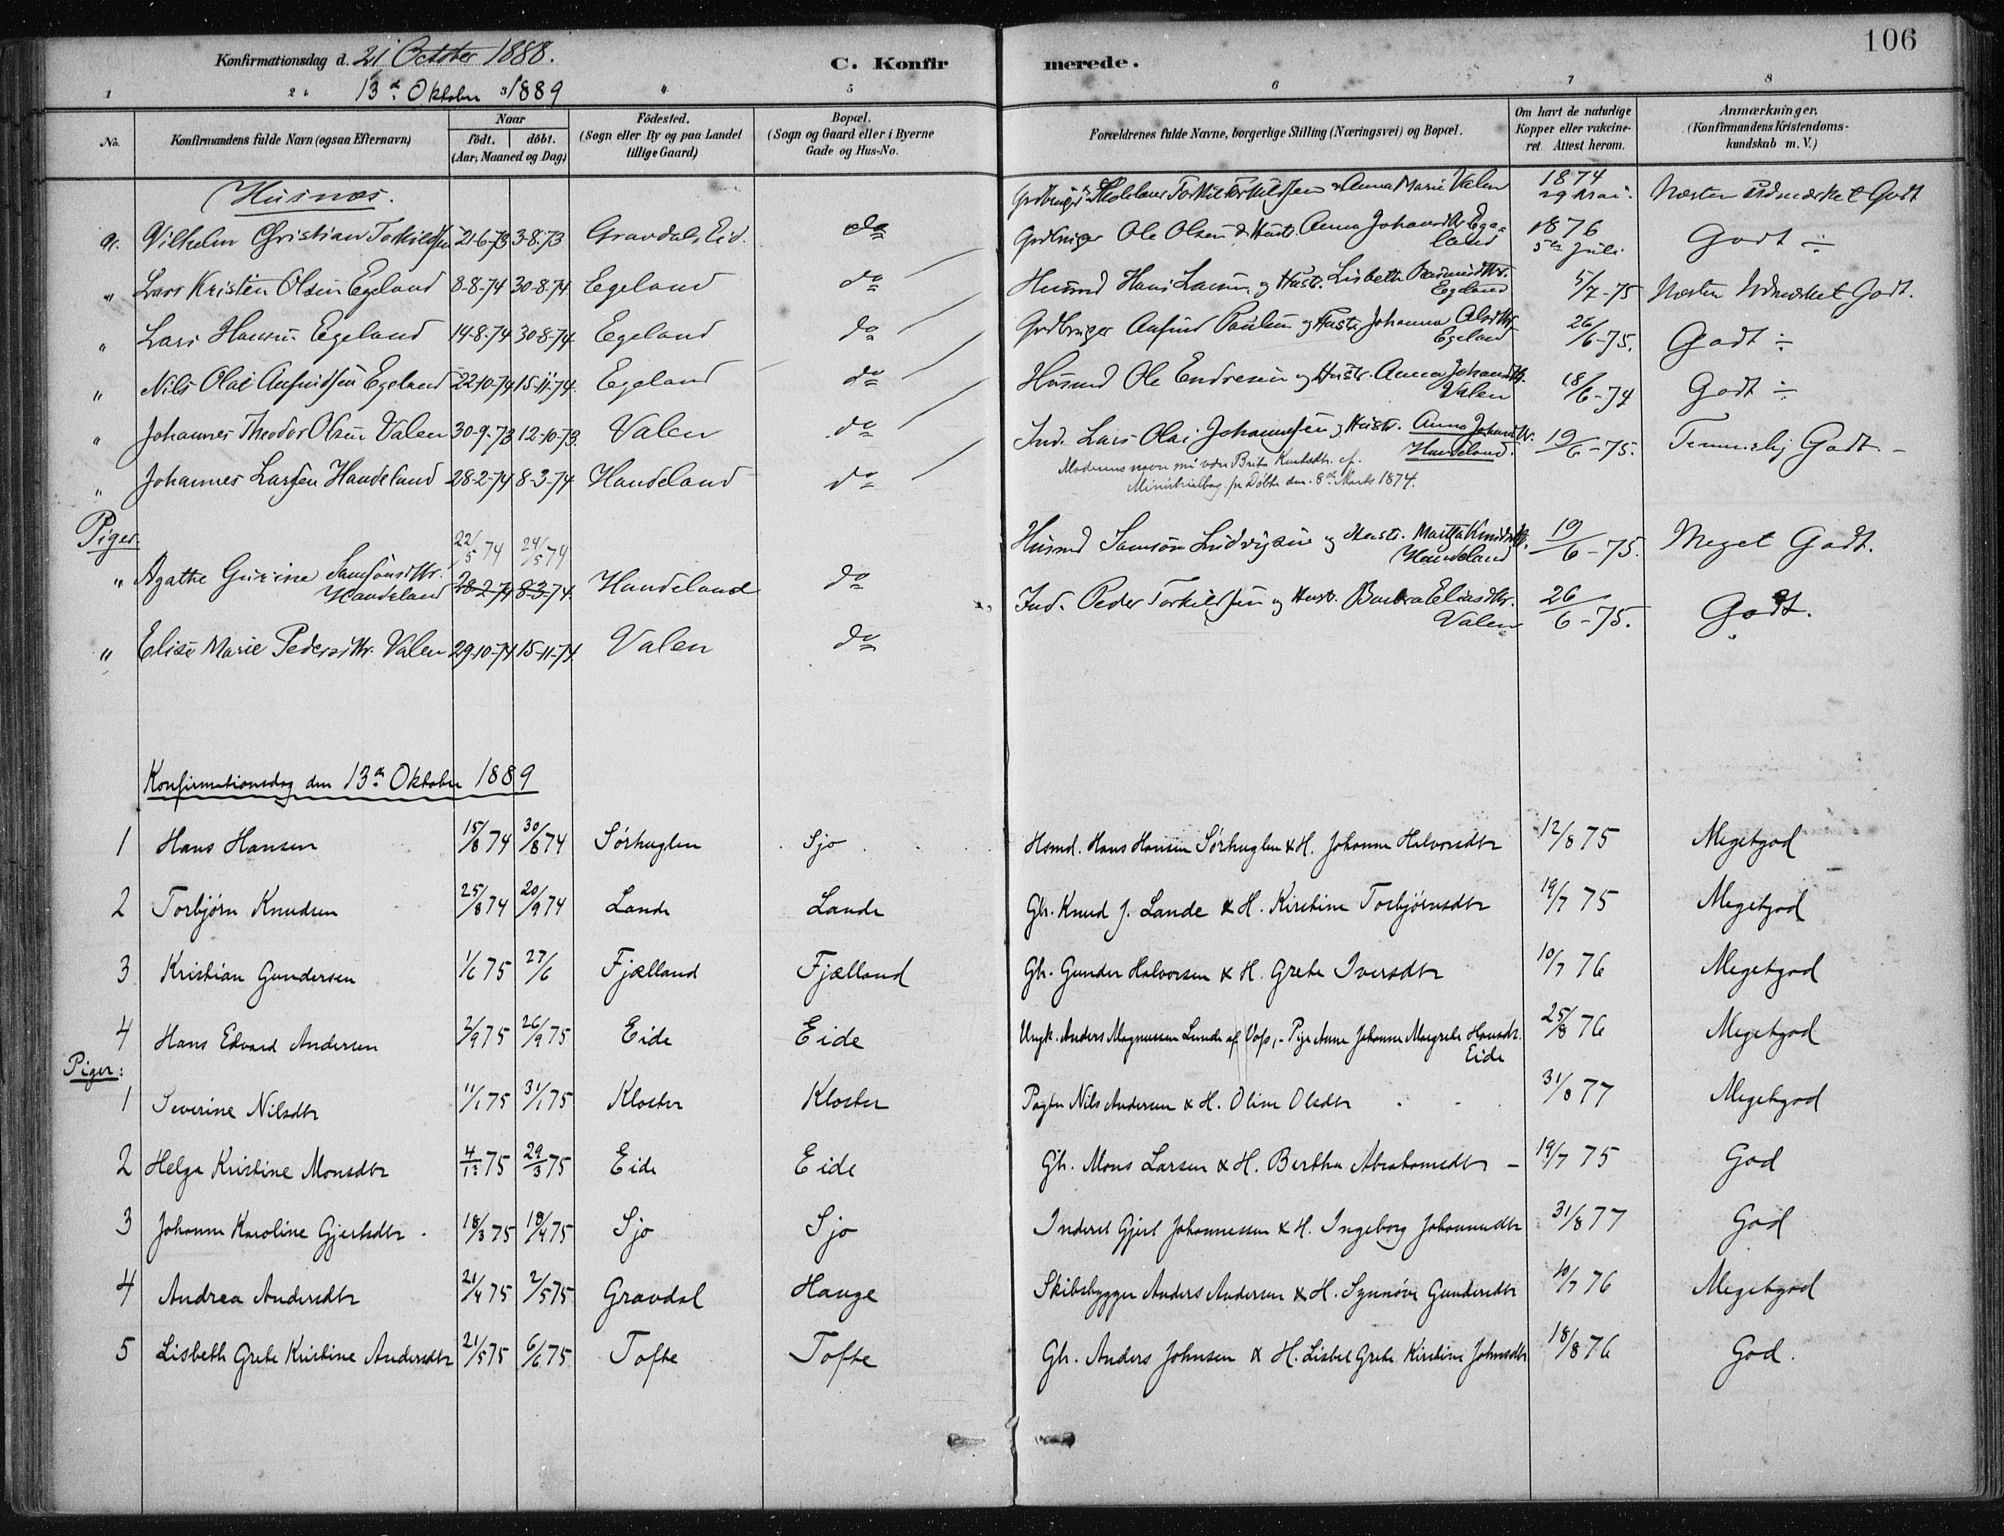 106
Konfirmationsdag d. 21 October 1888.
13de Oktober 1889
C. Konfirmerede.
1 2 3 4 5 6 7 8
No.
Konfirmandens fulde Navn (ogsaa Efternavn)
Naar
födt. döbt.
(Aar, Maaned og Dag)
Födested.
(Sogn eller By og paa Landet
tillige Gaard)
Bopæl.
(Sogn og Gaard eller i Byerne
Gade og Hus-No.
Forældrenes fulde Navne, borgerlige Stilling (Næringsvei) og Bopæl.
Om havt de naturlige
Kopper eller vakcine-
ret. Attest herom.
Anmærkninger.
(Konfirmandens Kristendoms-
kundskab m. V.)
Husnæs.
Vilhelm Christian Torkildsen 21-6-73 3-8-73 Gravdal, Eid. do Torkil Torkildsen & Anna Marie Valen 1874 29 Mai. Næsten Udmærket Godt
" Lars Kristen Olsen Egeland 8-8-74 30-8-74 Egeland do Grdbruger Ole Olsen & Hustr. Anna Johansdtr. Egeland 1876 5te Juli Godt ÷
" Lars Hansen Egeland 14-8-74 30-8-74 Egeland do Husmd Hans Larsen og Hustr. Lisbeth Rasmusdtr. Egeland 5/7-75 Næsten Udmærket Godt.
" Nils Olai Anfindsen Egeland 22-10-74 15-11-74 Egeland do Grdbruger Anfind Paulsen og Hustr. Johanna Olsdtr. Egeland 26/6-75. Godt ÷
" Johannes Theodor Olsen Valen 30-9-73 12-10-73 Valen do Husmd Ole Endresen og Hustr. Anna Johansdtr. Valen 18/6-74 Godt ÷
" Johannes Larsen Handeland 28-2-74 8-3-74 Handeland do Ind. Lars Olai Johannesen og Hustr. Anna Johansdtr. Handeland. 19/6-75. Temmelig Godt
Moderens navn må være Brita Knutsdtr. cf.
Ministrialbog for Døbte den 8de Marts 1874.
Piger.
22/5 74 24/5 74
" Agathe Gurine Samsonsdtr. Handeland 28-2-74 8-3-74 Handeland do Husmd Samson Ludvigsen og Hustr. Martha Knudsdtr. Handeland 19/6-75. Meget Godt.
" Elise Marie Pedersdtr. Valen 29-10-74 15-11-74 Valen do Ind. Peder Torkildsen og Hustr. Barbra Eliasdtr. Valen 26/6-75. Godt.
Konfirmationsdag den 13de Oktober 1889
1 Hans Hansen 15/8 74 30/8 74 Sørhuglen Sjo Hsmd. Hans Hansen Sørhuglen & H. Johanne Halvorsdtr 12/8 75 Megetgod
2 Torbjørn Knudsen 25/8 74 20/9 74 Lande Lande Gbr. Knud J. Lande & H. Kirstine Torbjørnsdtr 19/7 75 Megetgod
3 Kristian Gundersen 1/6 75 27/6 Fjælland Fjælland Gbr. Gunder Halvorsen & H. Grete Iversdtr 10/7 76 Megetgod
4 Hans Edvard Andersen 2/9 75 26/9 75 Eide Eide Ungk. Anders Magnussen Lunde af Voss, - Pige Anne Johanne Margrete Hansdt. Eide 25/8 76 Megetgod
Piger:
1 Severine Nilsdtr 11/1 75 31/1 75 Kloster Kloster Pagter Nils Andersen & H. Oline Olsdtr 31/8 77 Megetgod
2 Helga Kristine Monsdtr 4/12 75 29/3 75 Eide Eide Gbr. Mons Larsen & H. Bertha Abrahamsdtr - 19/7 75 God
3 Johanne Karoline Gjertsdtr 18/3 75 18/4 75 Sjo Sjo Inderst Gjert Johannessen & H. Ingeborg Johannesdtr 31/8 77 God
4 Andrea Andersdtr 21/4 75 2/5 75 Gravdal Hauge Skibsbygger Anders Andersen & H. Synnøve Gundersdtr 10/7 76 Megetgod
5 Lisbeth Grete Kristine Andersdtr 21/5 75 6/6 75 Tofte Tofte Gbr. Anders Johnsen & H. Lisbet Grete Kirstine Johnsdtr 18/8 76 God.